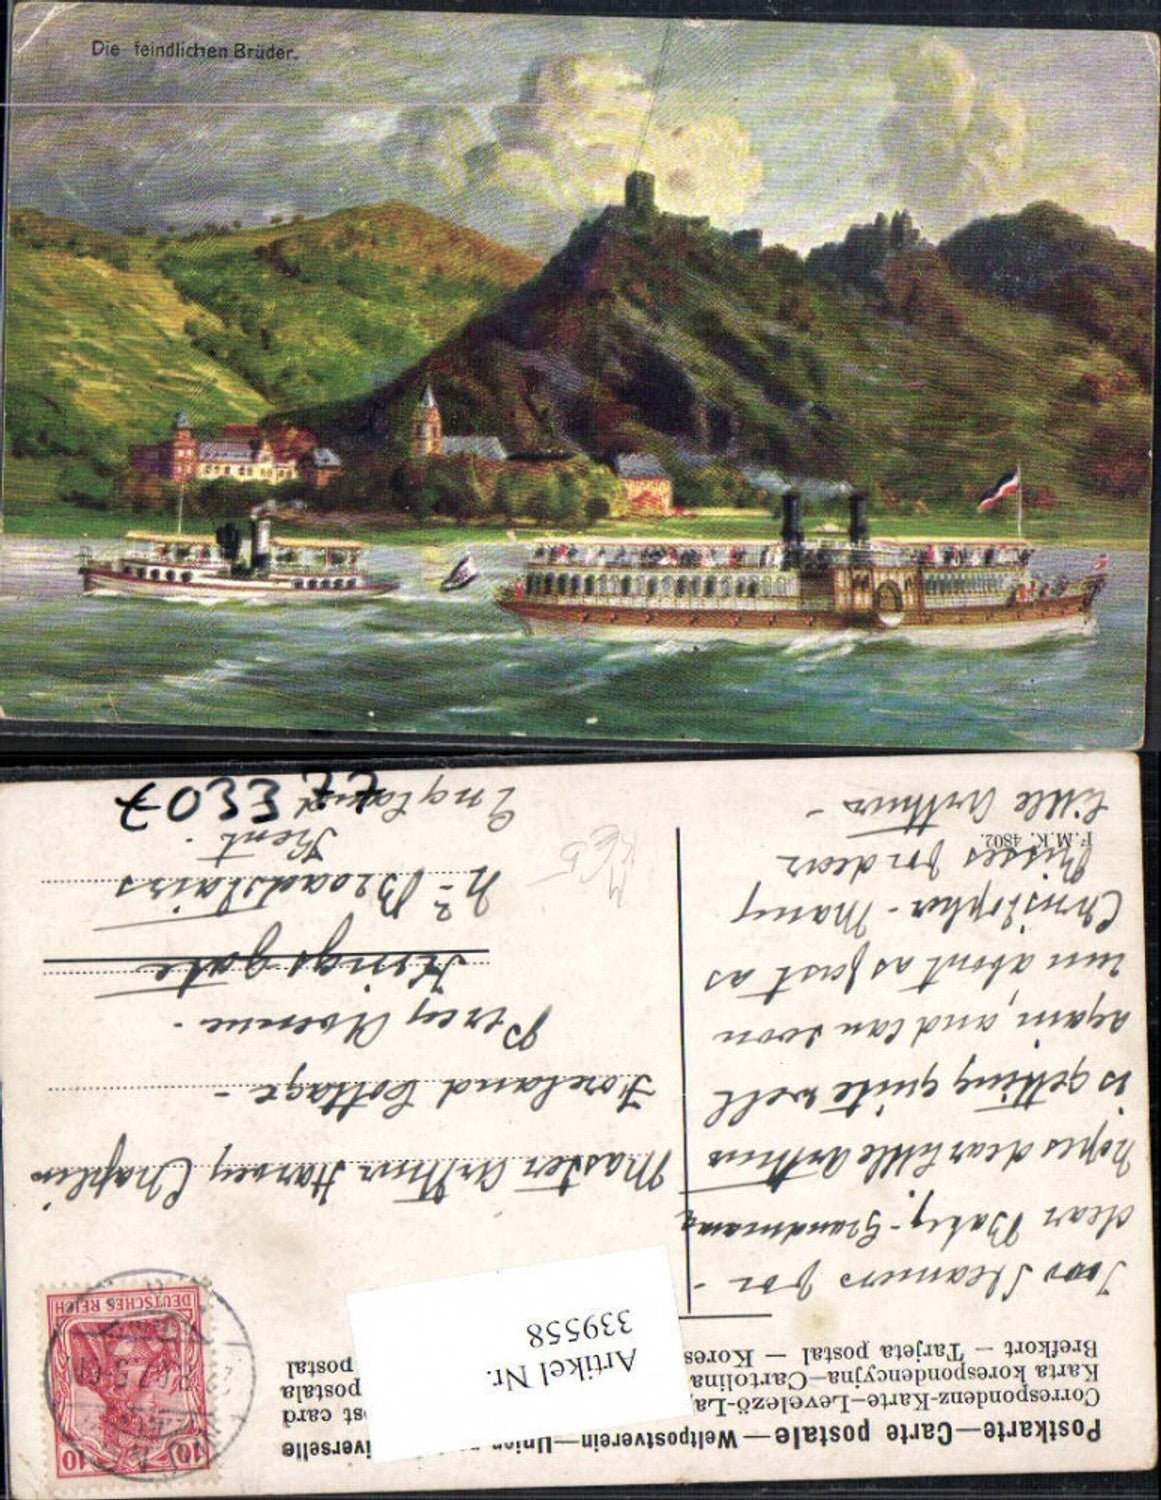 Die feindlichen Brüder.
Postkarte—Carte postale—Weltpostverein—Union
iverselle
Correspondenz-Karte—Levelező-La
st card
Karta korespondencyjna—Cartolina
postala
Brefkort — Tarjeta postal — Kores
postal
Artikel Nr.
339558
DEUTSCHES REICH
10 10
Two Steamers for -
dear Baby - Grandmama
hopes dear little Arthur
is getting quite well
again, and can soon
run about as fast as
Christopher - Many
Kisses for dear
little Arthur -
F. M. K. 4802.
Master Arthur Harvey Chaplin
Foreland Cottage -
Percy Avenue -
Kingsgate
Nr Broadstairs
Kent -
England